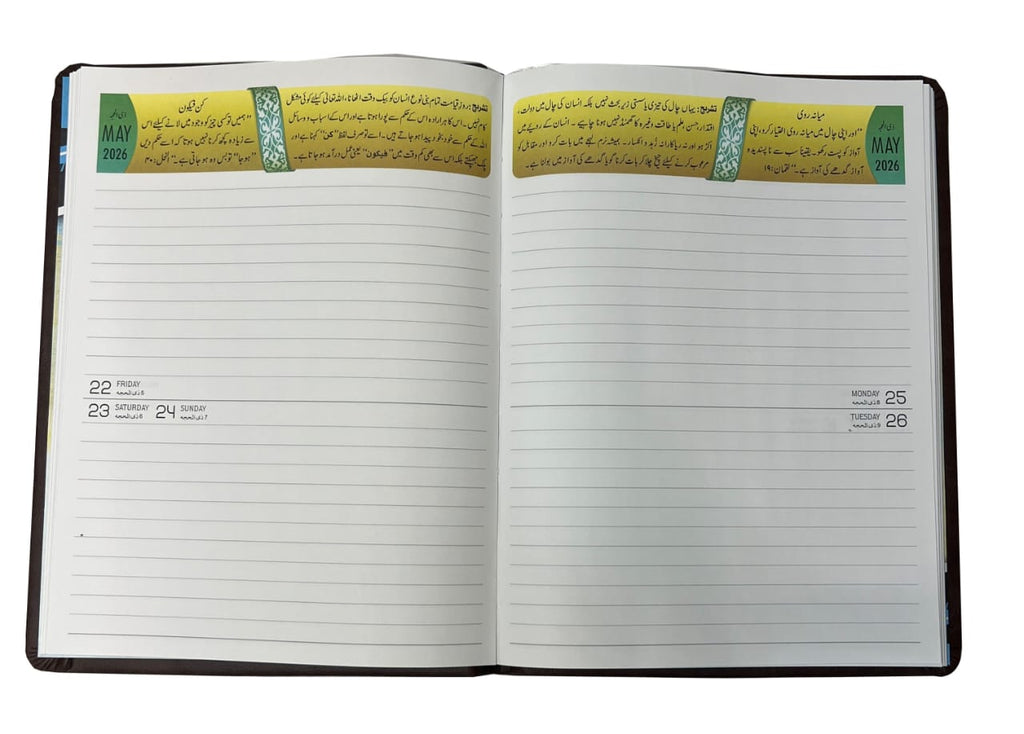 ذی الحجہ
MAY
2026
کن فیکون
"ہمیں تو کسی چیز کو وجود میں لانے کیلئے اس
سے زیادہ کچھ کرنا نہیں ہوتا کہ اسے حکم دیں
"ہو جا" تو بس وہ ہو جاتی ہے۔" النحل: ۴۰
تشریح: بروز قیامت تمام بنی نوع انسان کو بیک وقت اٹھانا، اللہ تعالیٰ کیلئے کوئی مشکل
کام نہیں۔ اس کا ہر ارادہ اس کے حکم سے پورا ہوتا ہے اور اس کے اسباب و وسائل
اللہ کے حکم سے خود بخود پیدا ہو جاتے ہیں۔ اسے تو صرف لفظ "کُن" کہنا ہے اور
پلک جھپکتے بلکہ اس سے بھی کم وقت میں "فیکون" یعنی عمل درآمد ہو جاتا ہے۔
22 FRIDAY
5 ذی الحجہ
23 SATURDAY 24 SUNDAY
6 ذی الحجہ 7 ذی الحجہ
میانہ روی
"اور اپنی چال میں میانہ روی اختیار کرو، اپنی
آواز کو پست رکھو۔ یقیناً سب سے ناپسندیدہ
آواز گدھے کی آواز ہے۔" لقمان: ۱۹
تشریح: یہاں چال کی تیزی یا سستی زیر بحث نہیں بلکہ انسان کی چال میں دولت،
اقتدار، حسن، علم یا طاقت وغیرہ کا گھمنڈ نہیں ہونا چاہیے۔ انسان کے رویے میں
اکڑ ہو اور نہ ریاکارانہ زہد و انکسار۔ ہمیشہ نرم لہجے میں بات کرو اور مقابل کو
مرعوب کرنے کیلئے چیخ چلا کر بات کرنا گویا گدھے کی آواز میں بولنا ہے۔
ذی الحجہ
MAY
2026
MONDAY 25
8 ذی الحجہ
TUESDAY 26
9 ذی الحجہ